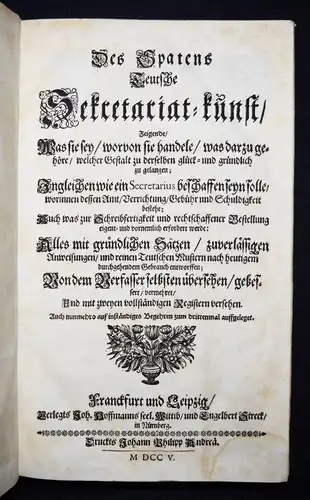 Des Spatens
Teutsche
Sekretariat-kunst/
Zeigende/
Was sie sey/ worvon sie handele/ was darzu ge-
höre/ welcher Gestalt zu derselben glück- und gründlich
zu gelangen;
Ingleichen wie ein Secretarius beschaffen seyn solle/
worinnen dessen Amt/ Verrichtung/ Gebühr und Schuldigkeit
bestehe;
Auch was zur Schreibfertigkeit und rechtschaffener Bestellung
eigent- und vornemlich erfordert werde:
Alles mit gründlichen Sätzen/ zuverlässigen
Anweisungen/ und reinen Teutschen Mustern nach heutigem
durchgehendem Gebrauch entworffen;
Von dem Verfasser selbsten übersehen/ gebes-
sert/ vermehret/
Und mit zweyen vollständigen Registern versehen.
Auch nunmehro auf inständiges Begehren zum drittenmal auffgeleget.
Franckfurt und Leipzig/
Verlegts Joh. Hoffmanns seel. Wittib/ und Engelbert Streck/
in Nürnberg.
Druckts Johann Philipp Andreä.
M DCC V.